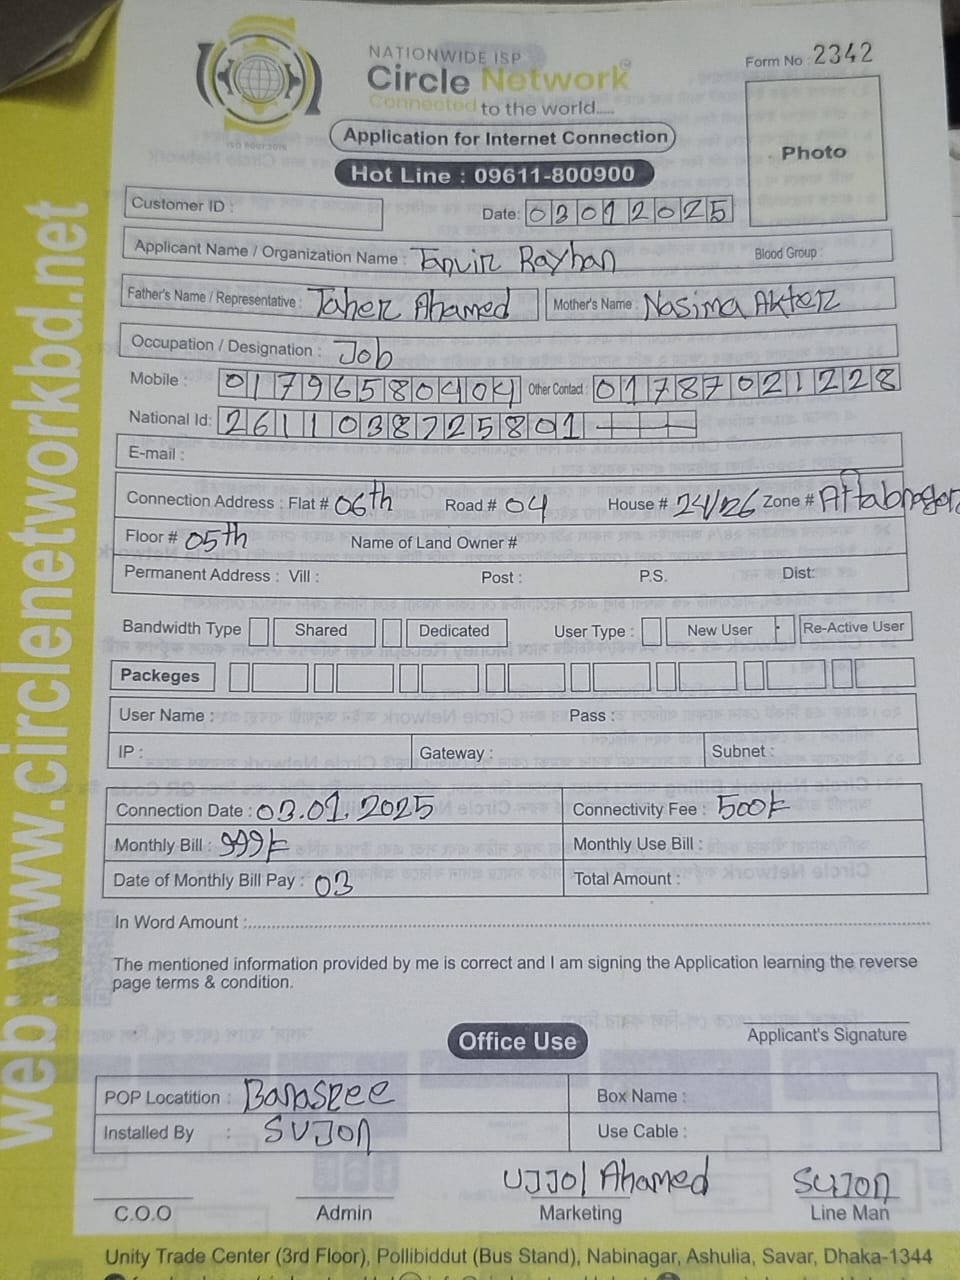 NATIONWIDE ISP
Circle Network
Connected to the world.....
Form No : 2342
ISO 9001:2015
Application for Internet Connection
Photo
Hot Line : 09611-800900
Customer ID :
Date: 03012025
Applicant Name / Organization Name : Tanvir Rayhan Blood Group :
Father's Name / Representative : Taher Ahamed Mother's Name : Nasima Akter
Occupation / Designation : Job
Mobile : 01796580404 Other Contact : 01787021228
National Id: 2611038725801
E-mail :
Connection Address : Flat # 06th Road # 04 House # 24/26 Zone # Aftabnagor
Floor # 05th Name of Land Owner #
Permanent Address : Vill : Post : P.S. Dist:
Bandwidth Type Shared Dedicated User Type : New User Re-Active User
Packeges
User Name : Pass :
IP : Gateway : Subnet :
Connection Date : 03.01.2025 Connectivity Fee : 500/=
Monthly Bill : 999/= Monthly Use Bill :
Date of Monthly Bill Pay : 03 Total Amount :
In Word Amount :
The mentioned information provided by me is correct and I am signing the Application learning the reverse
page terms & condition.
Applicant's Signature
Office Use
POP Locatition : Box Name :
Installed By : SUJON Use Cable :
UJJOl Ahamed SUJON
C.O.O Admin Marketing Line Man
Unity Trade Center (3rd Floor), Pollibiddut (Bus Stand), Nabinagar, Ashulia, Savar, Dhaka-1344
web: www.circlenetworkbd.net